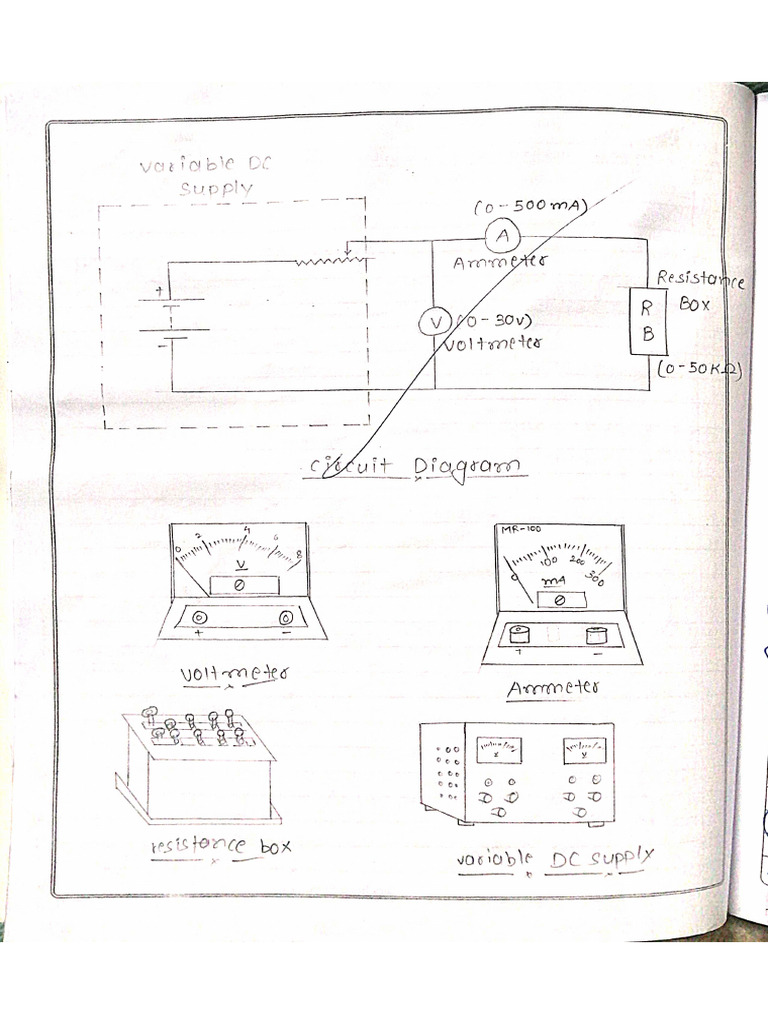 variable DC
supply
(0-500mA)
A
Ammeter
+
-
V
(0-30v)
voltmeter
Resistance
Box
R
B
(0-50KΩ)
circuit Diagram
0 2 4 6 8
V
+ -
voltmeter
MR-100
0 100 200 300
mA
+ -
Ammeter
resistance box
x y
variable DC supply